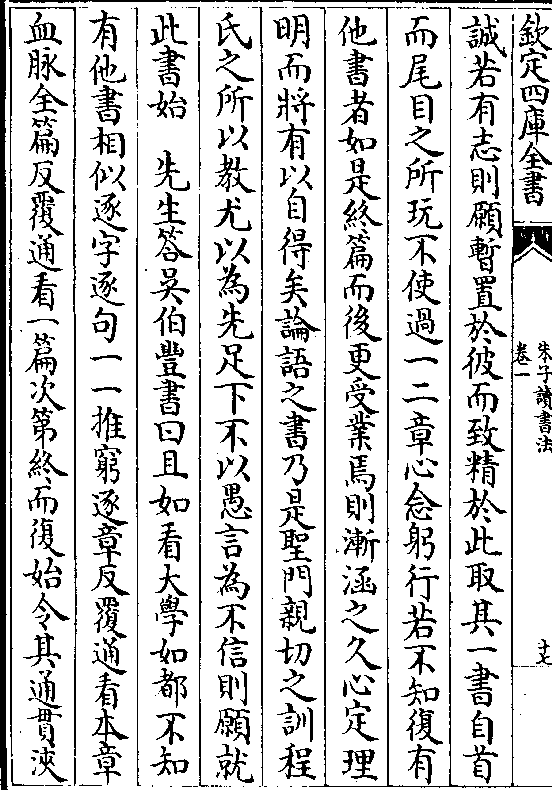 欽定四庫全書
朱子讀書法
卷一
十七
誠若有志則願暫置於彼而致精於此取其一書自首
而尾目之所玩不使過一二章心念躬行若不知復有
他書者如是終篇而後更受業焉則漸涵之久心定理
明而將有以自得矣論語之書乃是聖門親切之訓程
氏之所以教尤以為先足下不以愚言為不信則願就
此書始　先生答吳伯豐書曰且如看大學如都不知
有他書相似逐字逐句一一推窮逐章反覆通看本章
血脉全篇反覆通看一篇次第終而復始令其通貫浹